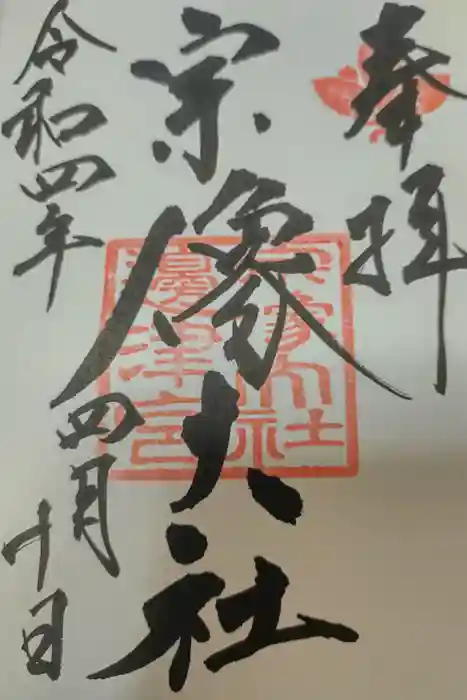 奉拝
宗像大社
宗像大社
邊津宮
令和四年
四月十日